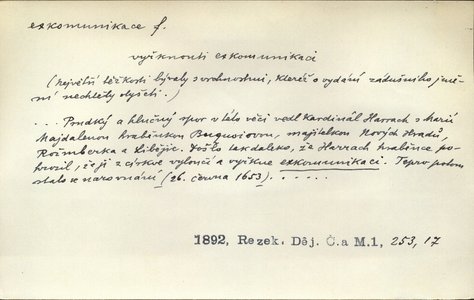 exkomunikace f.
vyřknouti exkomunikaci
(největší těžkosti bývaly s vrchnostmi, které o vydání zádušního jmě-
ní nechtěly slyšeti.)
... Prudký a hlučný spor v této věci vedl kardinál Harrach s Marií
Majdalenou hraběnkou Buquoiovou, majitelkou Nových Hradů,
Rožmberka a Libějic. Došlo tak daleko, že Harrach hraběnce po-
hrozil, že ji z církve vyloučí a vyřkne exkommunikaci. Teprv potom
stalo se narovnání (26. června 1653) . . . . . .
1892, Rezek. Děj. Č.a M.1, 253, 17